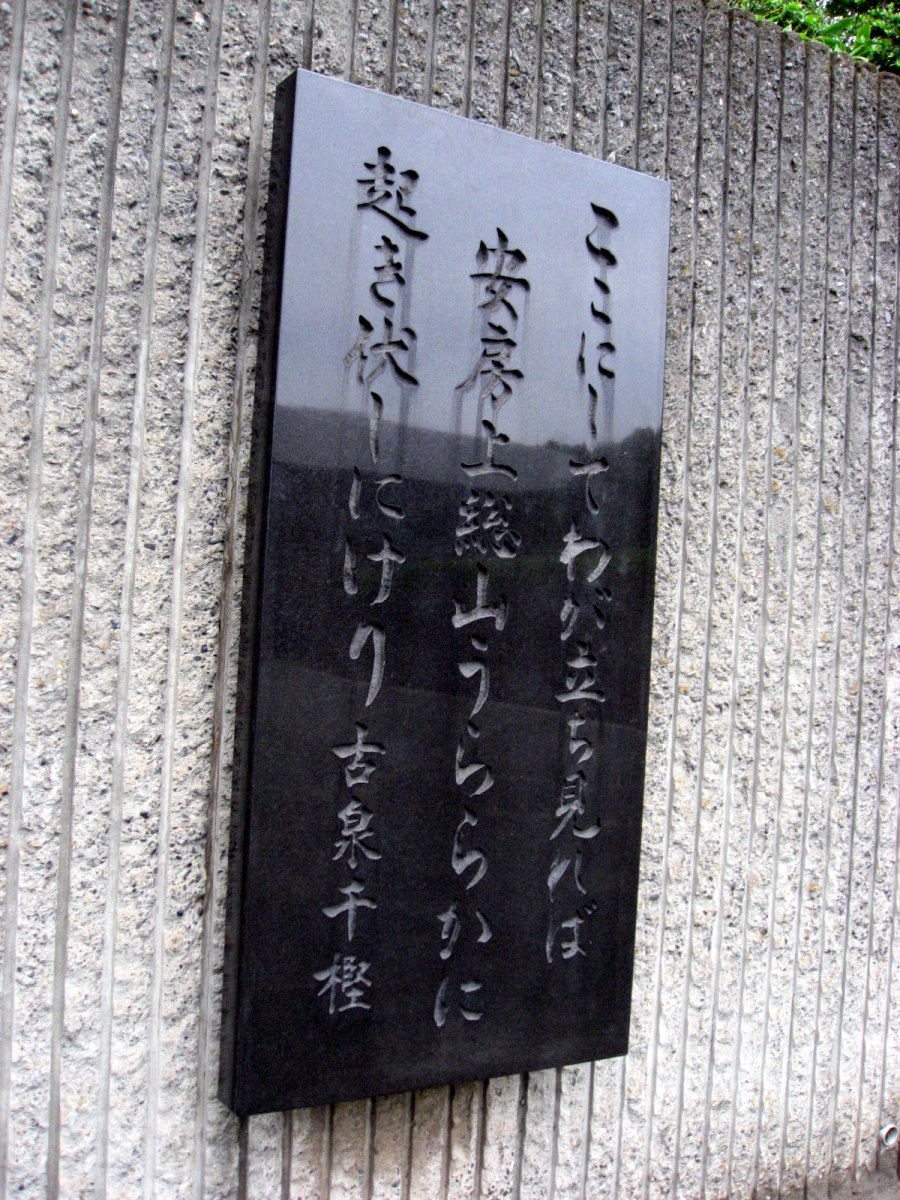 ここにしてわが立ち見れば
安房上総山うららかに
起き伏しにけり 古泉千樫